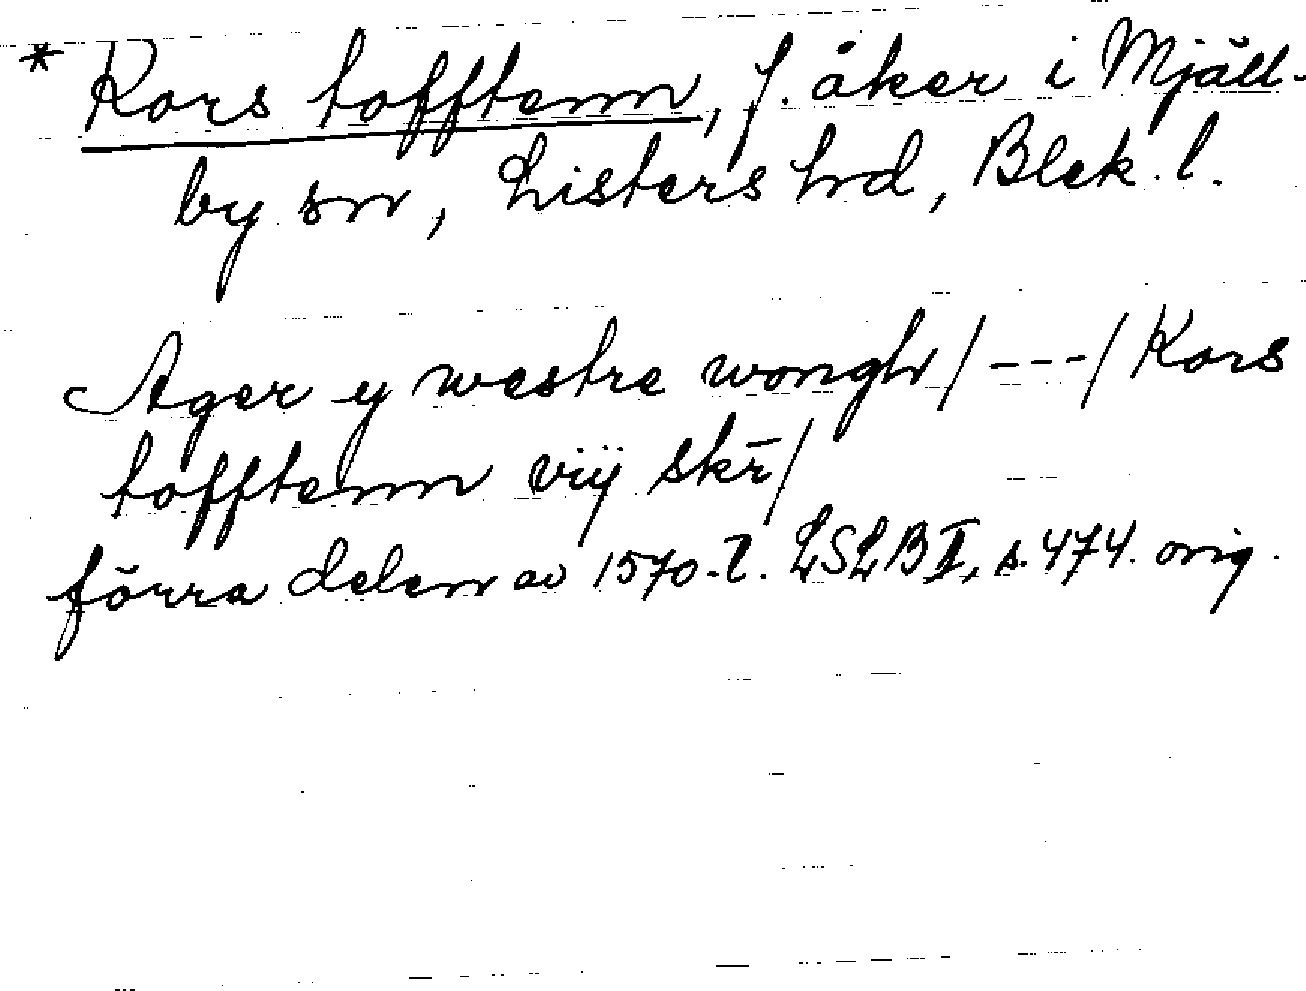 * Kors tofftenn, f. åker i Mjäll-
by sn, Listers hd, Blek. l.
Ager y westre wongh/ --- / Kors
tofftenn vij skr̄/
förra delen av 1570-t. LSLB II, s. 474. orig.